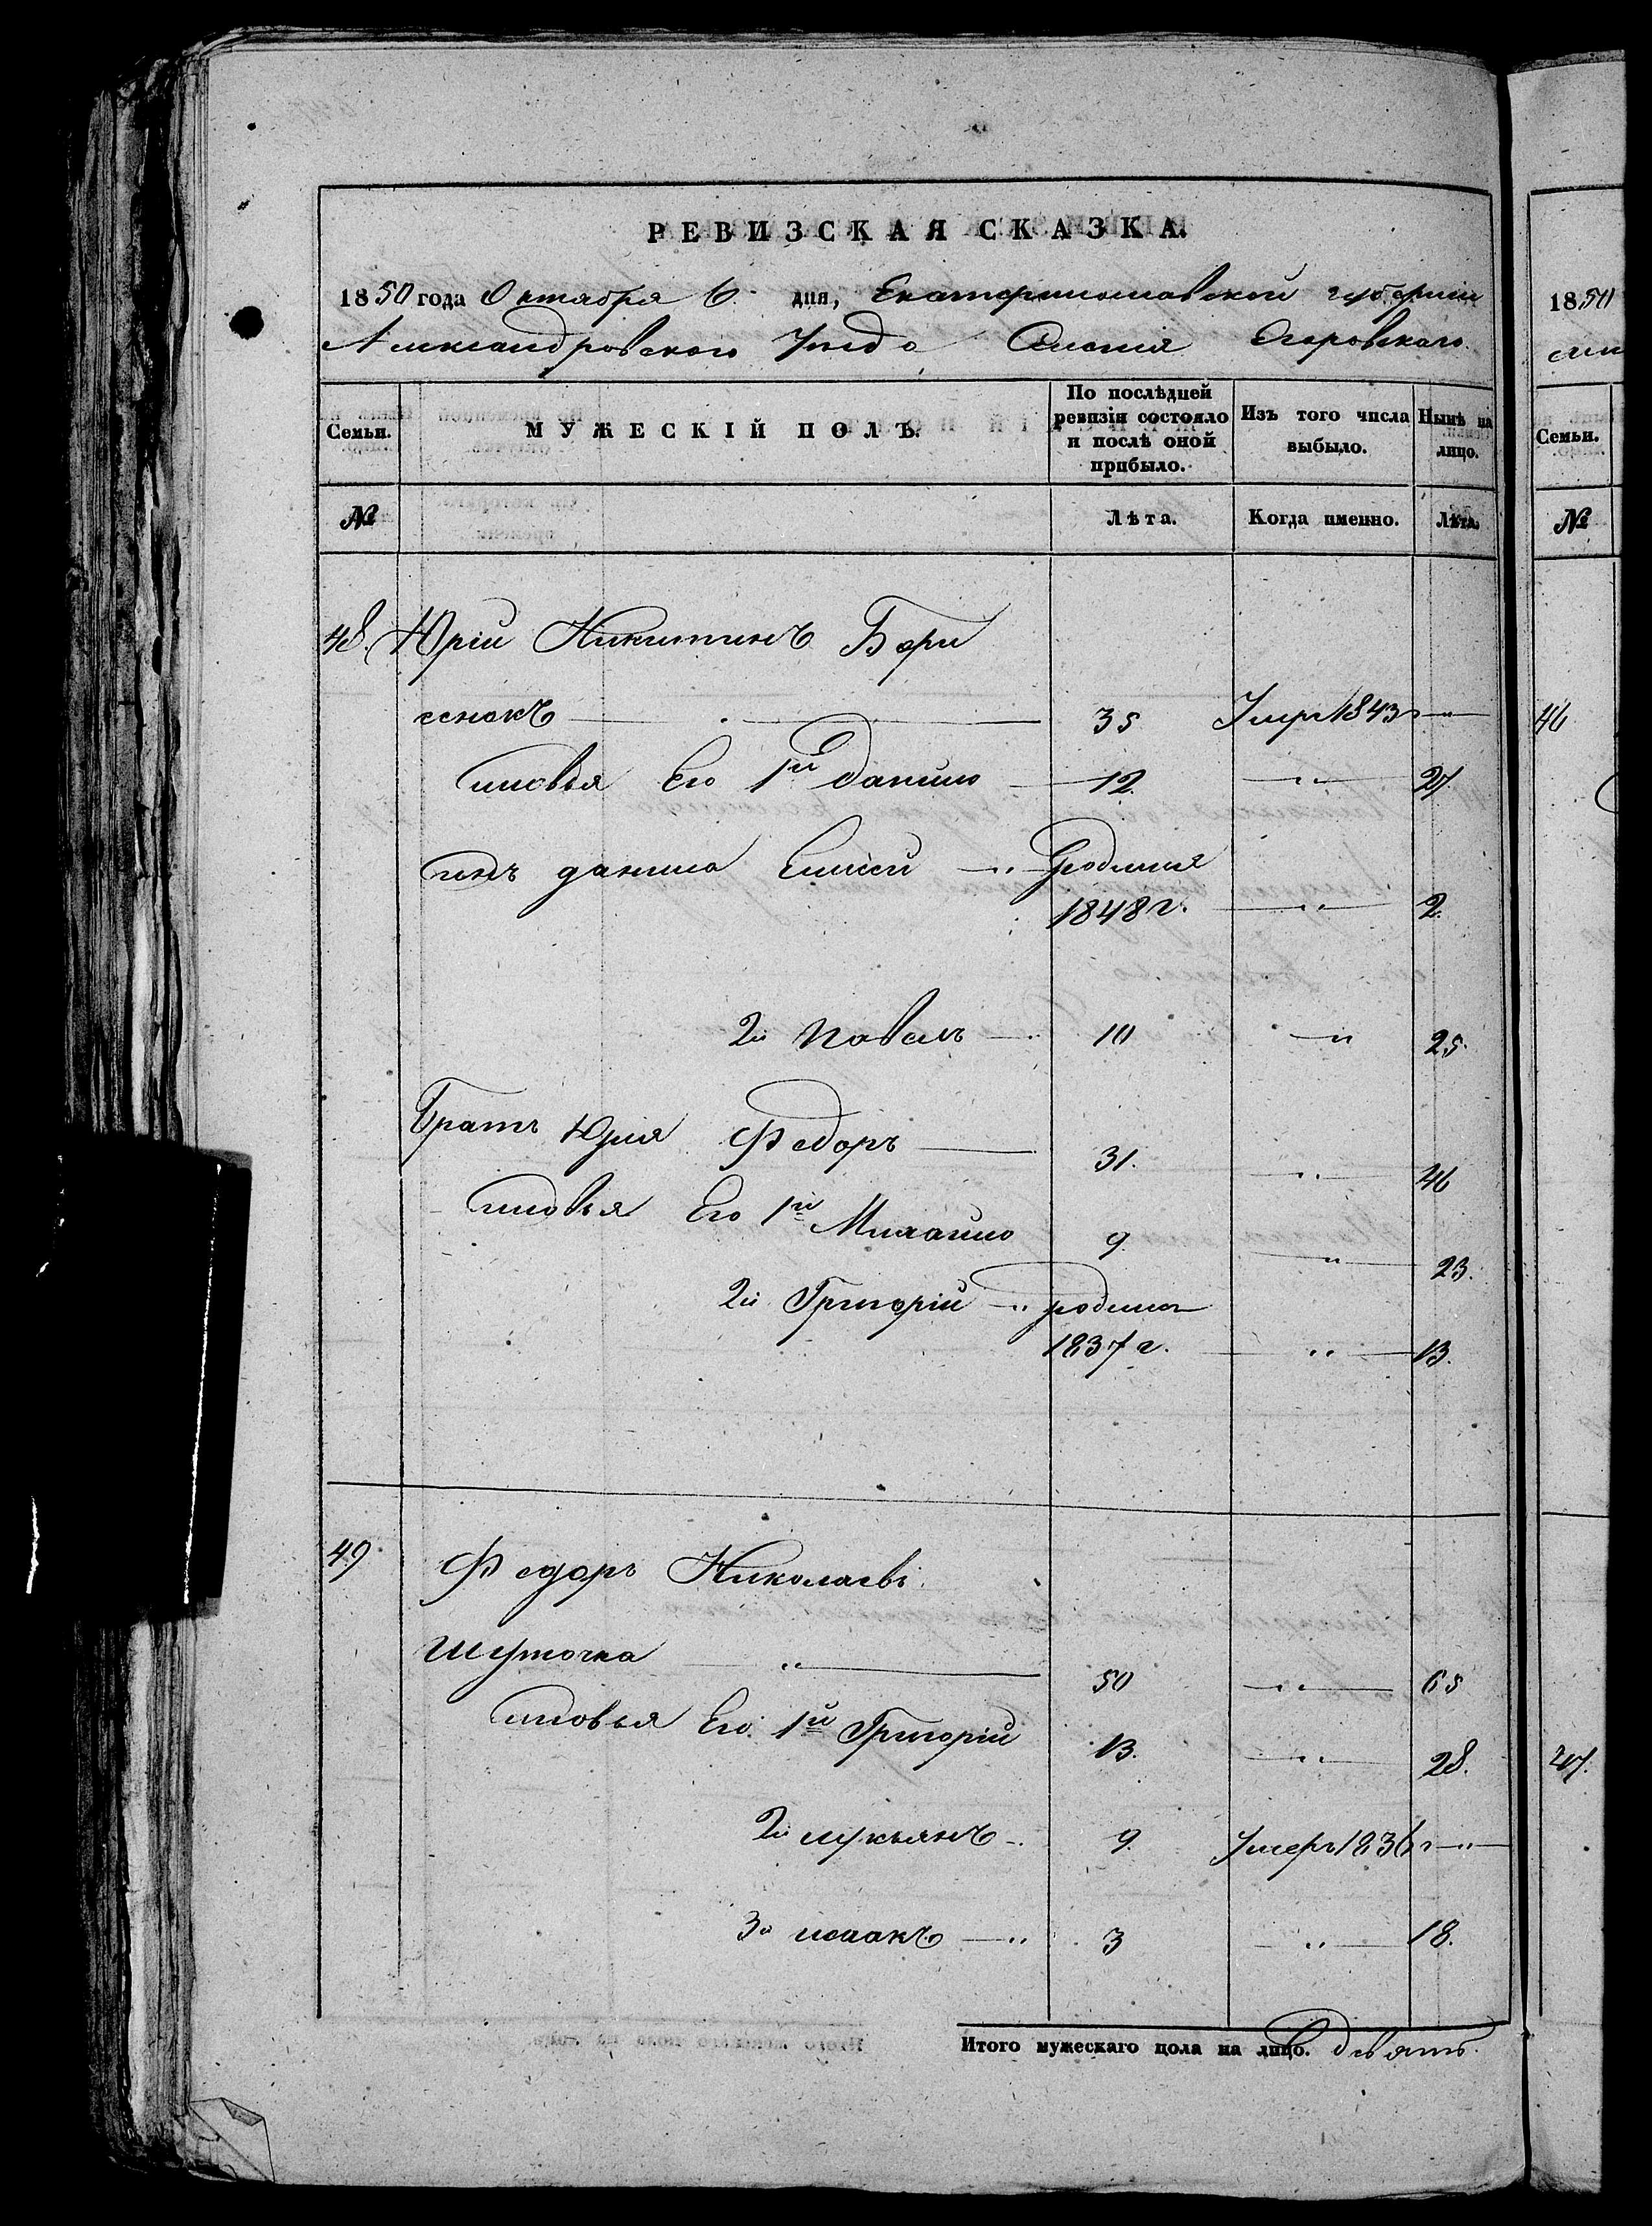 РЕВИЗСКАЯ СКАЗКА.
1850 года Октября 6. дня, Екатеринославской губернии
Александровского Уезда Селенія Егоровскаго
Семьи.
МУЖЕСКІЙ ПОЛЪ.
По послѣдней ревизіи состояло и послѣ оной прибыло.
Изъ того числа выбыло.
Нынѣ на лицо.
№
Лѣта.
Когда именно.
Лѣта.
48. Юрій Никитинъ Бори
сенокъ 35 Умер 1843 г
сыновья Его 1й Данило 12 27.
сынъ данила Елисей родился
1848 г. 2.
2й Павелъ 10 25.
Братъ Юрія Федоръ 31. 46
сыновья Его 1й Михайло 9. 23.
2й Григорій родился
1837 г. 13.
49 Федоръ Николаевъ
Шуточка 50 65
сыновья Его 1й Григорій 13. 28.
2й лукьянъ 9. Умеръ 1836 г
3й исаакъ 3 18.
Итого мужескаго пола на лицо. девять.
1850
Семьи.
№
46
47.